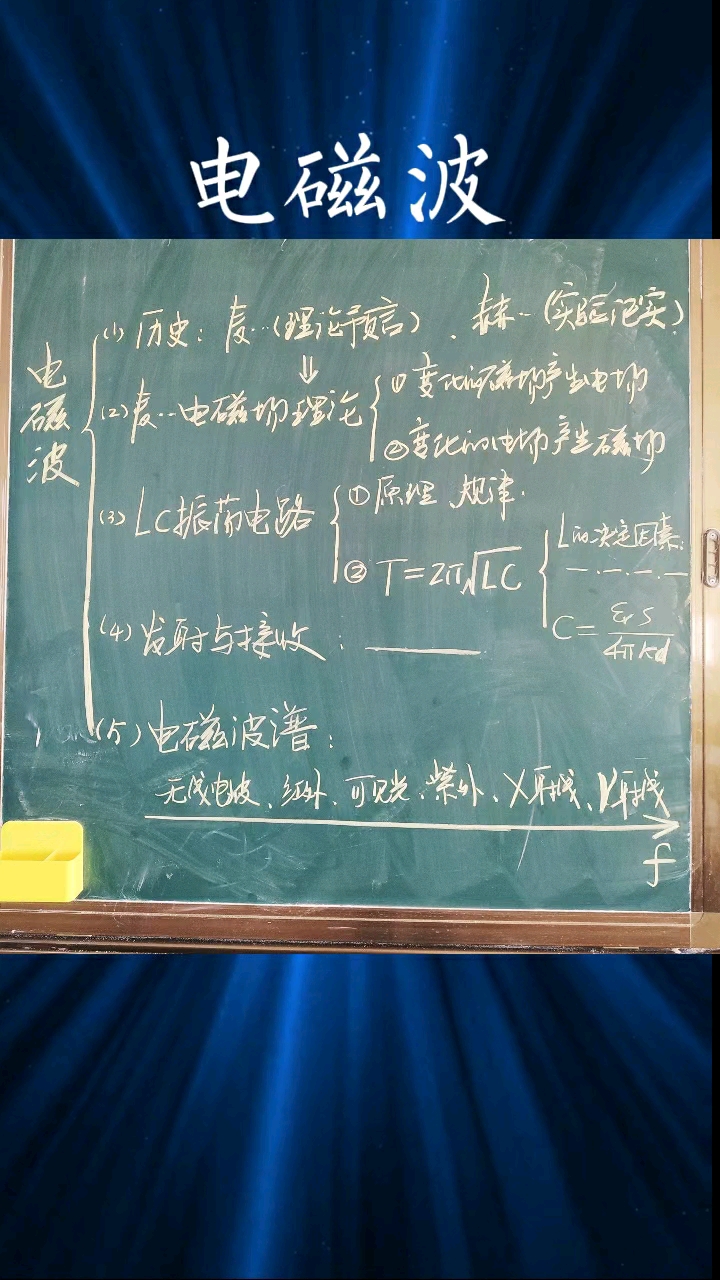 电磁波
电磁波
(1) 历史：麦…(理论预言)、赫…(实验证实)
⇓
(2) 麦…电磁场理论
① 变化的磁场产生电场
② 变化的电场产生磁场
(3) LC振荡电路
① 原理、规律.
② T=2π√LC
L的决定因素:
—·—·—·—
C=εrS/4πkd
(4) 发射与接收：
(5) 电磁波谱：
无线电波、红外、可见光、紫外、X射线、γ射线
f